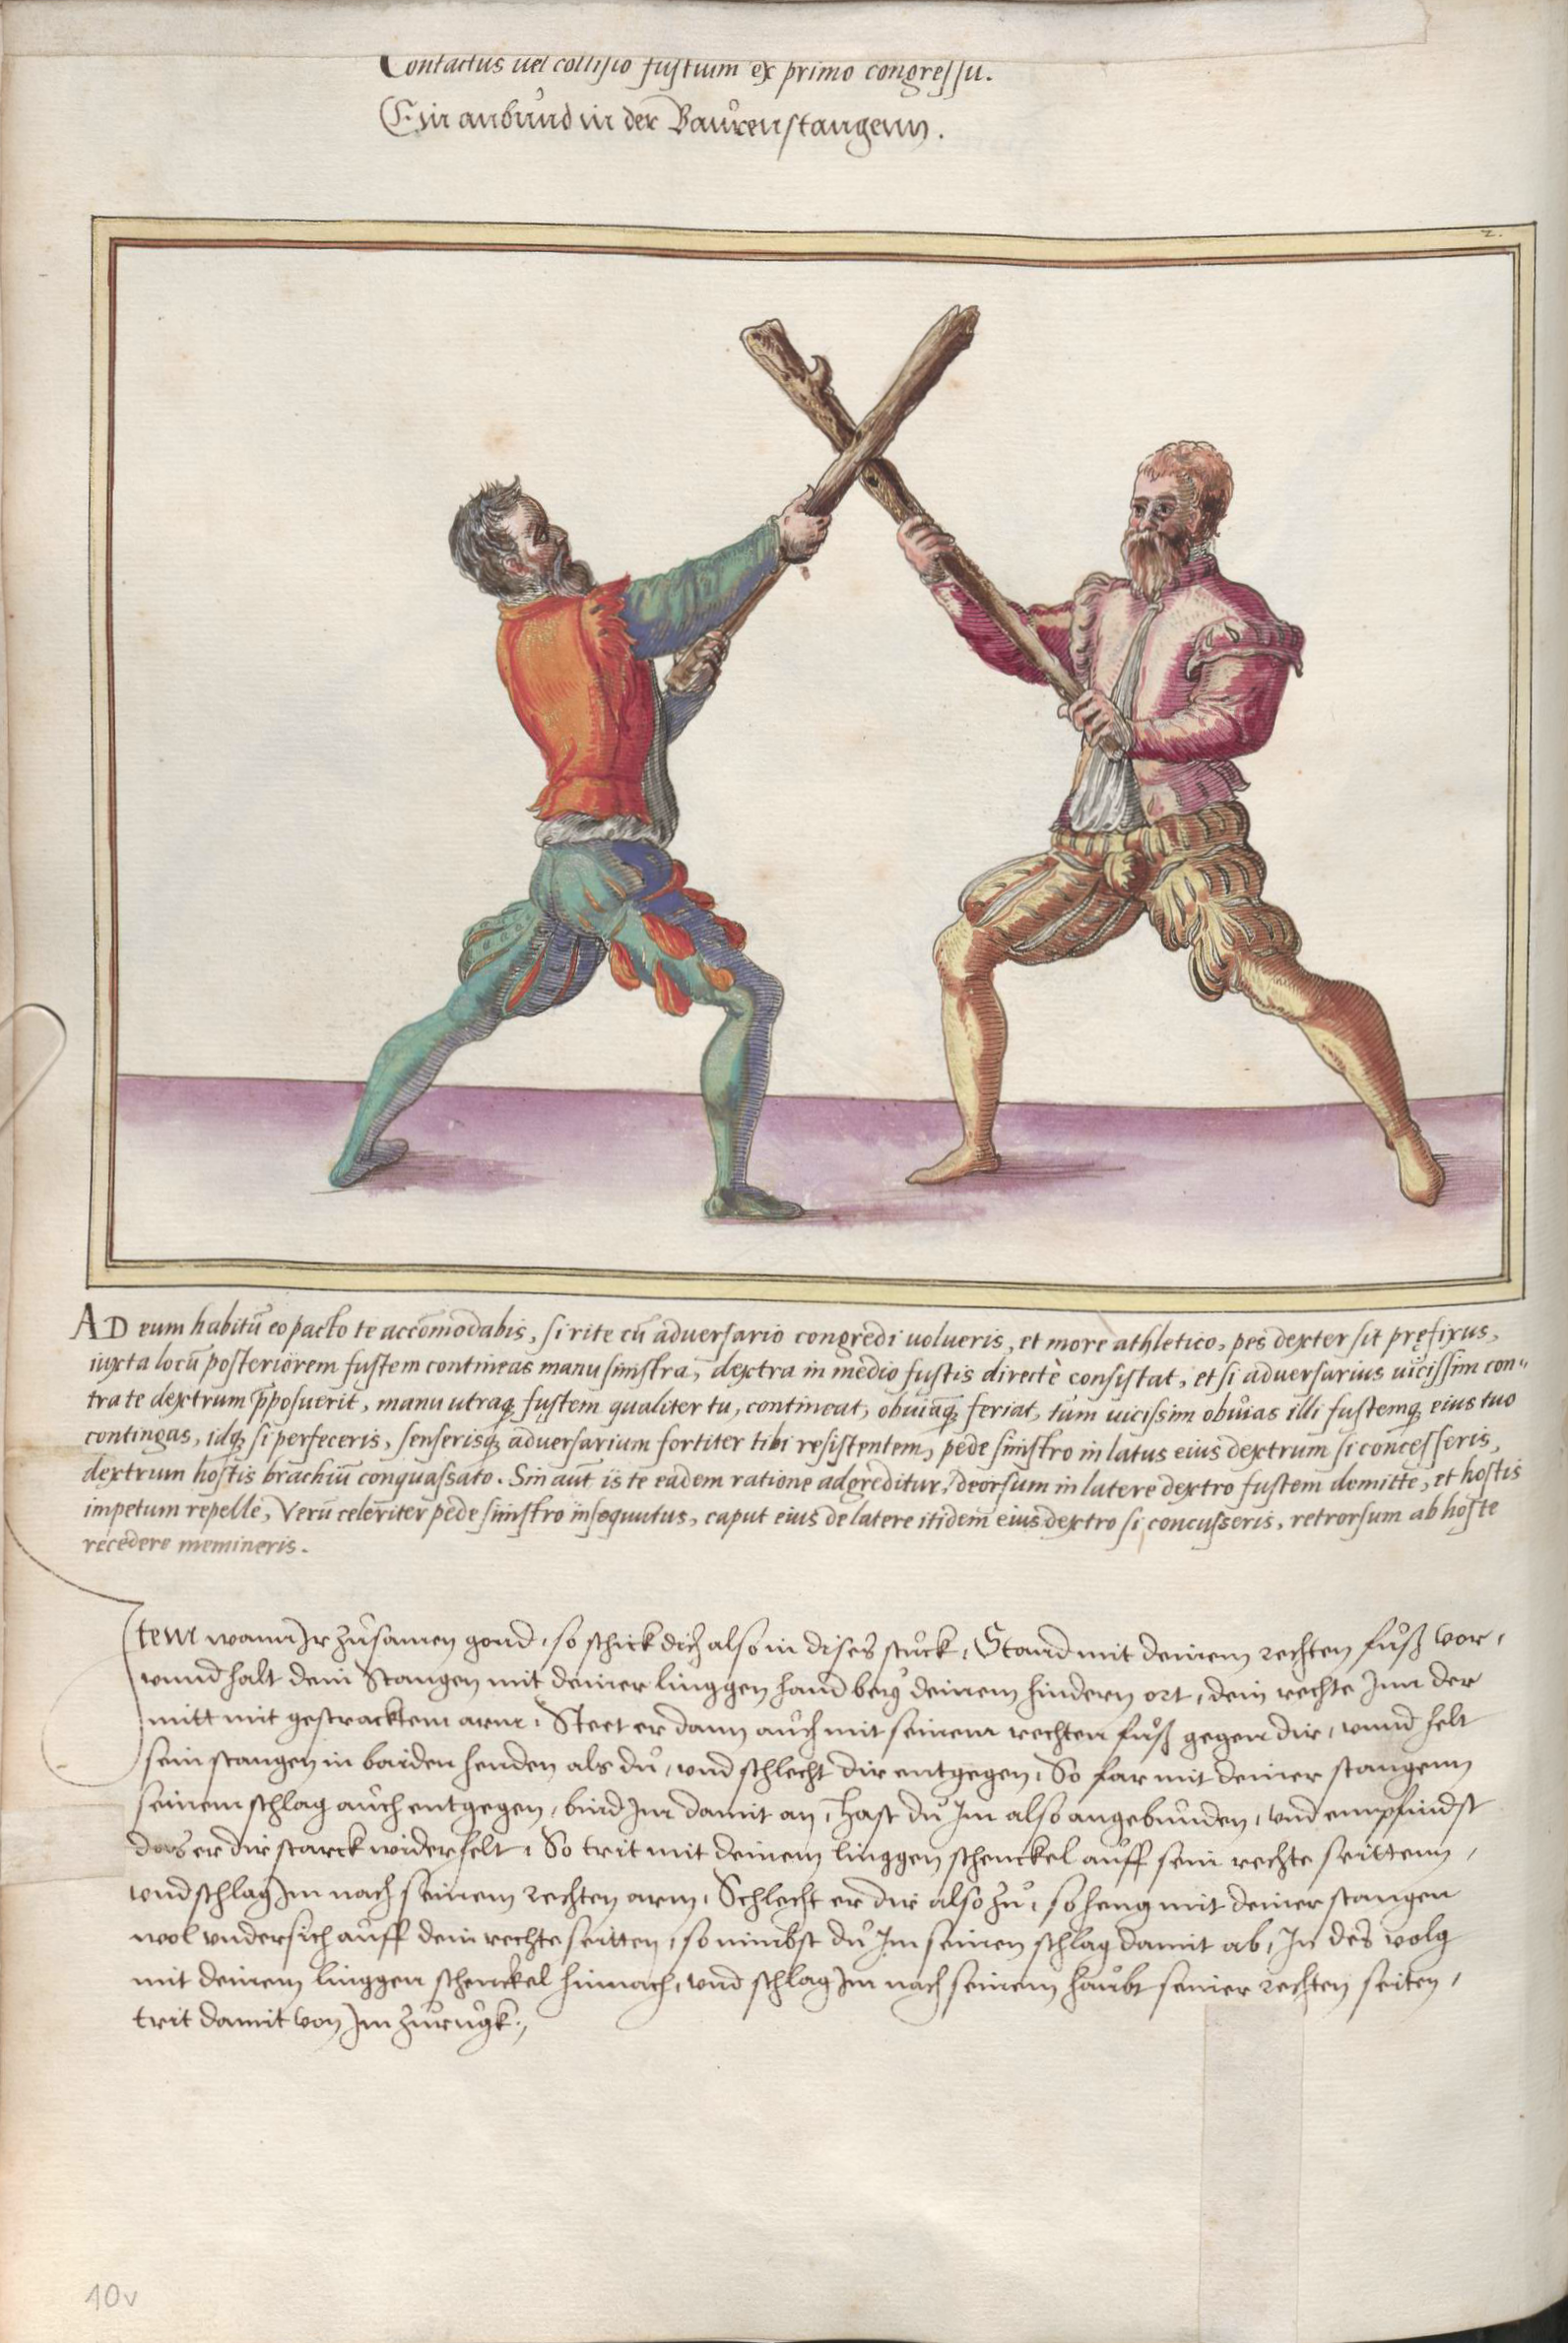 Contactus uel collisio fustium ex primo congressu.
Ein anbund in der Baůrenstangenn.
2.
AD eum habitū eo pacto te accōmodabis, si rite cū adversario congredi volueris, et more athletico, pes dexter sit pręfixus,
iuxta locū posteriorem fustem contineas manu sinistra, dextra in medio fustis directè consistat, et si adversarius uicissim con„
tra te dextrum p̄posuerit, manu utraq; fustem qualiter tu, contineat, obuiāq; feriat, tum uicissim obuias illi fustemq; eius tuo
contingas, idq; si perfeceris, senserisq; adversarium fortiter tibi resistentem, pede sinistro in latus eius dextrum si concesseris,
dextrum hostis brachiū conquassato. Sin aūt is te eadem ratione adgreditur, deorsum in latere dextro fustem demitte, et hostis
impetum repelle, Verū celeriter pede sinistro insequutus, caput eius de latere itidem eius dextro si concusseris, retrorsum ab hoste
recedere memineris.
Item wann Ir zůsamen gond, so schick dich also in dises stuck, Stand mit deinem rechten fůß vor,
unnd halt dein Stangen mit deiner linggen hand beÿ deinem hindern ort, dein rechte Inn der
mitt mit gestracktem arm, Steet er dann aůch mit seinem rechten fůß gegen dir, unnd helt
sein stangen in baiden henden als dů, und schlecht dir entgegen, So far mit deiner stangenn
seinem schlag aůch entgegen, bind Im damit an, Hast dů Im also angebunden, und empfindst
das er dir starck widerhelt, So trit mit deinem linggen schenckel aůff sein rechte seittenn,
und schlag Im nach seinem rechten arm, Schlecht er dir also zů, so heng mit deiner stangen
wol undersich aůff dein rechte seitten, so nimbst dů Im seinen schlag damit ab, In des volg
mit deinem linggen schenckel hinnach, und schlag Im nach seinem haůbt seiner rechten seiten,
trit damit von Im zůrugk.
40v